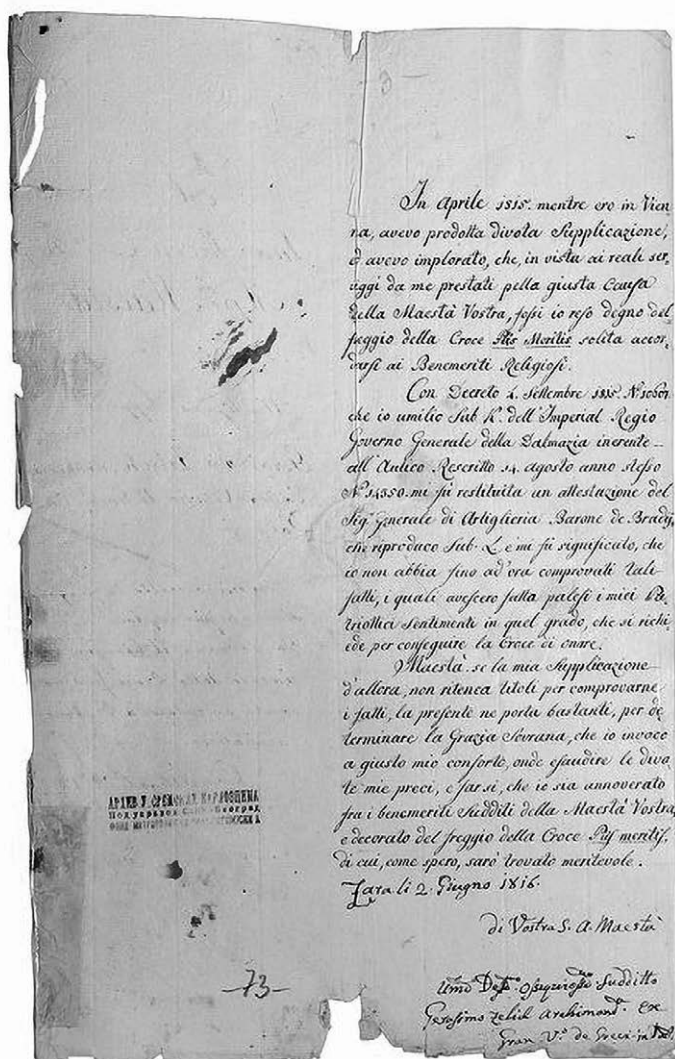 In Aprile 1815. mentre ero in Vien
na, avevo prodotta divota Supplicazione,
ed avevo implorato, che, in vista ai reali ser,
viggi da me prestati pella giusta Causa
della Maestà Vostra, fossi io reso degno del
freggio della Croce Piis Meritis solita accor,
darsi ai Benemeriti Religiosi.
Con Decreto 4. Settembre 1815. N.
che io umilio Sub K. dell'Imperial Regio
Governo Generale della Dalmazia inerente
all'Aulico Rescritto 14. agosto anno stesso
N.º 14350. mi fù restituita un attestazione del
Sig.r Generale di Artiglieria Barone de Brady,
che riproduco Sub. L. e mi fù significato, che
io non abbia fino ad'ora comprovati tali
fatti, i quali avessero fatta palesi i miei Pa,
triottici sentimenti in quel grado, che si richi,
ede per conseguire la Croce di onore.
Maestà. se la mia Supplicazione
d'allora, non riteneà titoli per comprovarne
i fatti, la presente ne porta bastanti, per de
terminare la Grazia Sovrana, che io invoco
a giusto mio conforto, onde esaudire le divo,
te mie preci, e far si, che io sia annoverato
fra i benemeriti Sudditi della Maestà Vostra,
e decorato del freggio della Croce Piis meritis,
di cui, come spero, sarò trovato meritevole.
Zara li 2. Giugno 1816.
di Vostra S. A. Maestà
Umo Osequiosmo Suddito
Gerasimo Zelich Archimand. Ex
Gran V.º de Greci in
АРХИВ У СРЕМСКИМ КАРЛОВЦИМА
Под управом Београд
-73-